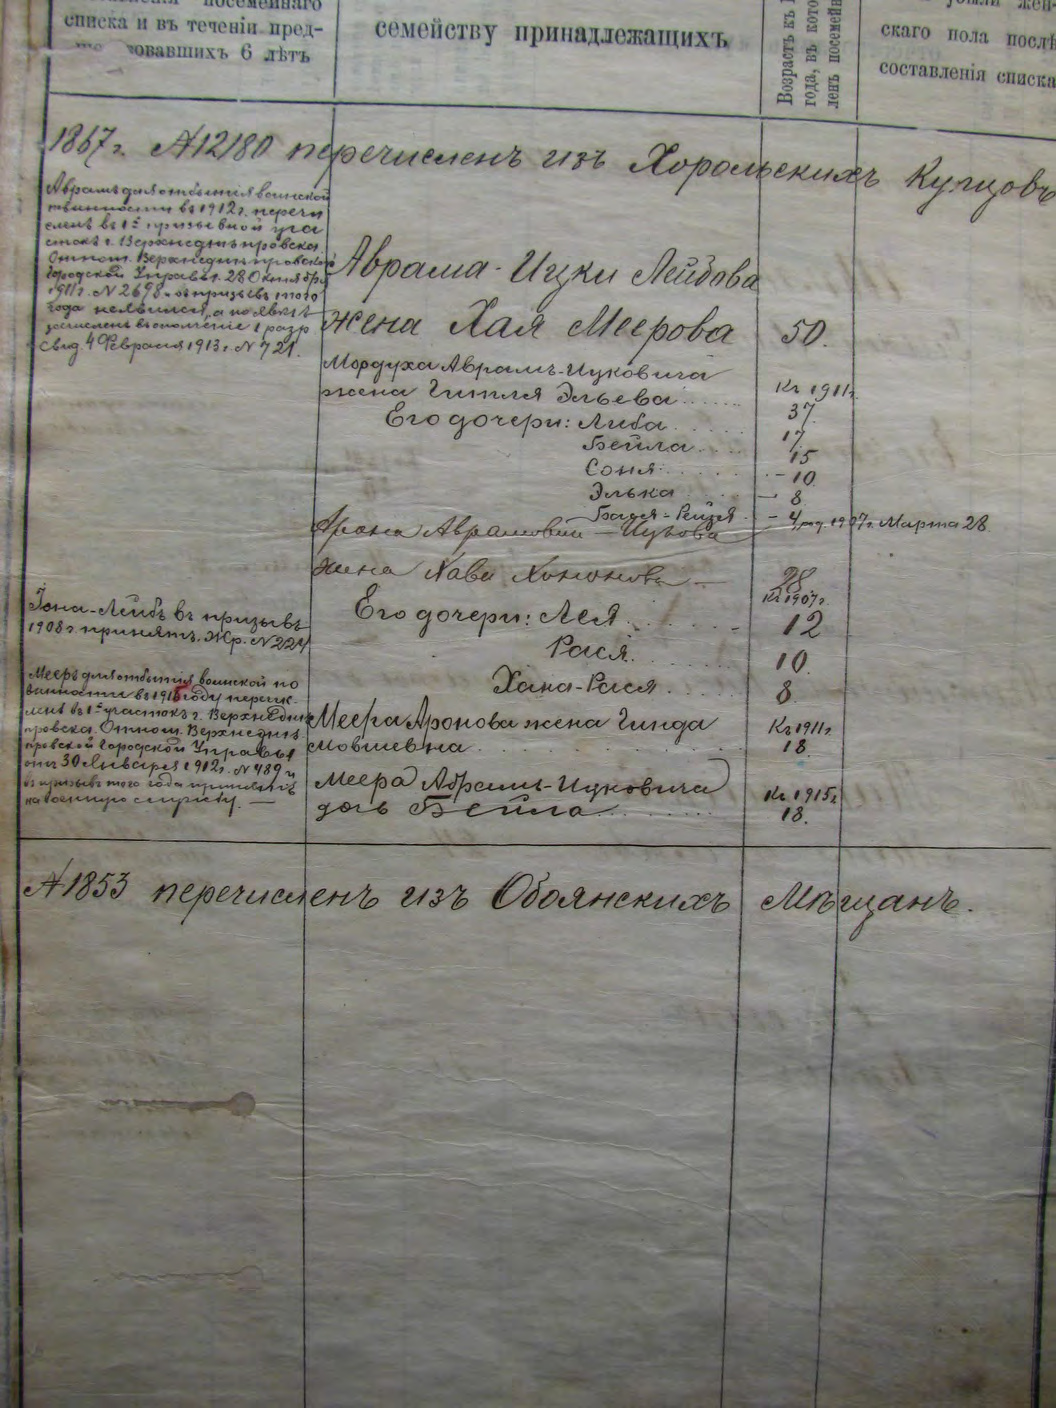 посемейнаго
списка и въ теченіи пред-
вовавшихъ 6 лѣтъ
семейству принадлежащихъ
Возрастъ къ 1
года, въ кото
ленъ посемейн
убыли жен-
скаго пола послѣ
составленія списка
1867 г. №12180 перечисленъ изъ Хорольскихъ Купцовъ
Аврамъ для отбытія воинской
повинности въ 1912 г. перечи
сленъ въ 1й призывной уча
стокъ г. Верхнеднѣпровска.
Отнош. Верхнеднѣпровской
Городской Управы. 28 Октября
1911 г. № 2698. въ призывъ того
года неявился, а по явкѣ
зачисленъ въ ополченіе 1 разр
Свид. 4 Февраля 1913 г. № 721.
Аврама-Ицки Лейбова
жена Хая Меерова 50.
Мордуха Аврамъ-Ицковича
жена Гитля Эльева Къ 1911 г. 37
Его дочери: Либа 17
Бейла 15
Соня 10
Элька 8
Бася-Рейзя 4, род. 1907 г. Марта 28
Арона Аврамович-Ицкова
жена Хава Хононова 28
Къ 1907 г.
Его дочери: Лея 12
Рася 10
Хана-Рася 8
Іона-Лейбъ въ призывъ
1908 г. принятъ. Жр. № 224
Мееръ для отбытія воинской по
винности въ 1915 году перечи
сленъ въ 1й участокъ г. Верхнеднѣ
провска. Отнош. Верхнеднѣ
провской Городской Управы
отъ 30 Января 1912 г. № 489 и
въ призывъ того года принятъ
на военную службу.
Меера Аронова жена Гинда Къ 1911 г.
Мовшевна 18.
Меера Абрамъ-Ицковича Къ 1915 г.
дочь Бейла 18.
№1853 перечисленъ изъ Обоянскихъ Мѣщанъ.